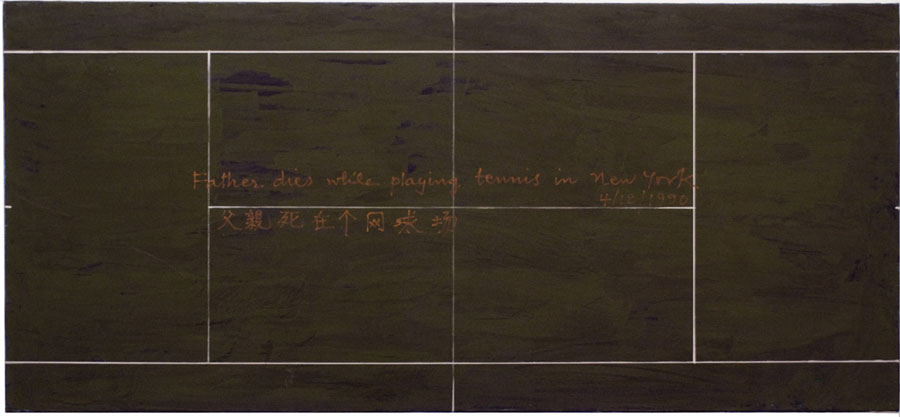 Father dies while playing tennis in New York
4/18/1990
父親死在个网球场